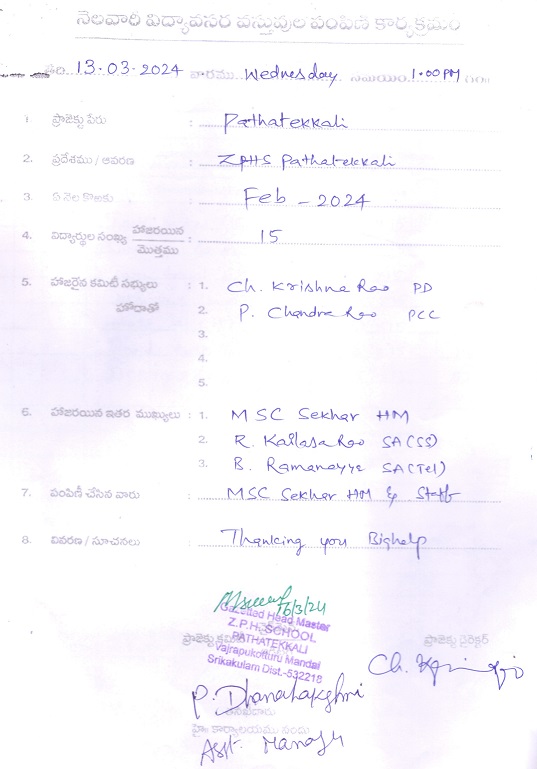 నెలవారీ విద్యావసర వస్తువుల పంపిణీ కార్యక్రమం
తేది. 13.03-2024 వారము Wednesday సమయం. 1.00PM గం॥
1. ప్రాజెక్టు పేరు : Pathatekkali
2. ప్రదేశము / ఆవరణ : ZPHS Pathatekkali
3. ఏ నెల కొఱకు : Feb - 2024
4. విద్యార్థుల సంఖ్య హాజరయిన / మొత్తము : 15
5. హాజరైన కమిటీ సభ్యులు : 1. Ch. Krishna Rao PD
హోదాతో 2. P. Chandra Rao PCC
3.
4.
5.
6. హాజరయిన ఇతర ముఖ్యులు : 1. MSC Sekhar HM
2. R. Kailasa Rao SA(SS)
3. B. Ramanayya SA(Tel)
7. పంపిణీ చేసిన వారు : MSC Sekhar HM & Staff
8. వివరణ / సూచనలు : Thanking you Bighelp
16/3/24
Gazetted Head Master
Z.P.H. SCHOOL
ప్రాజెక్టు ప్రాజెక్టు డైరెక్టర్
PATHATEKKALI
Vajrapukotturu Mandal
Srikakulam Dist.-532218
P. Dhanalakshmi
హై కార్యాలయము నందు
Asst. Manager